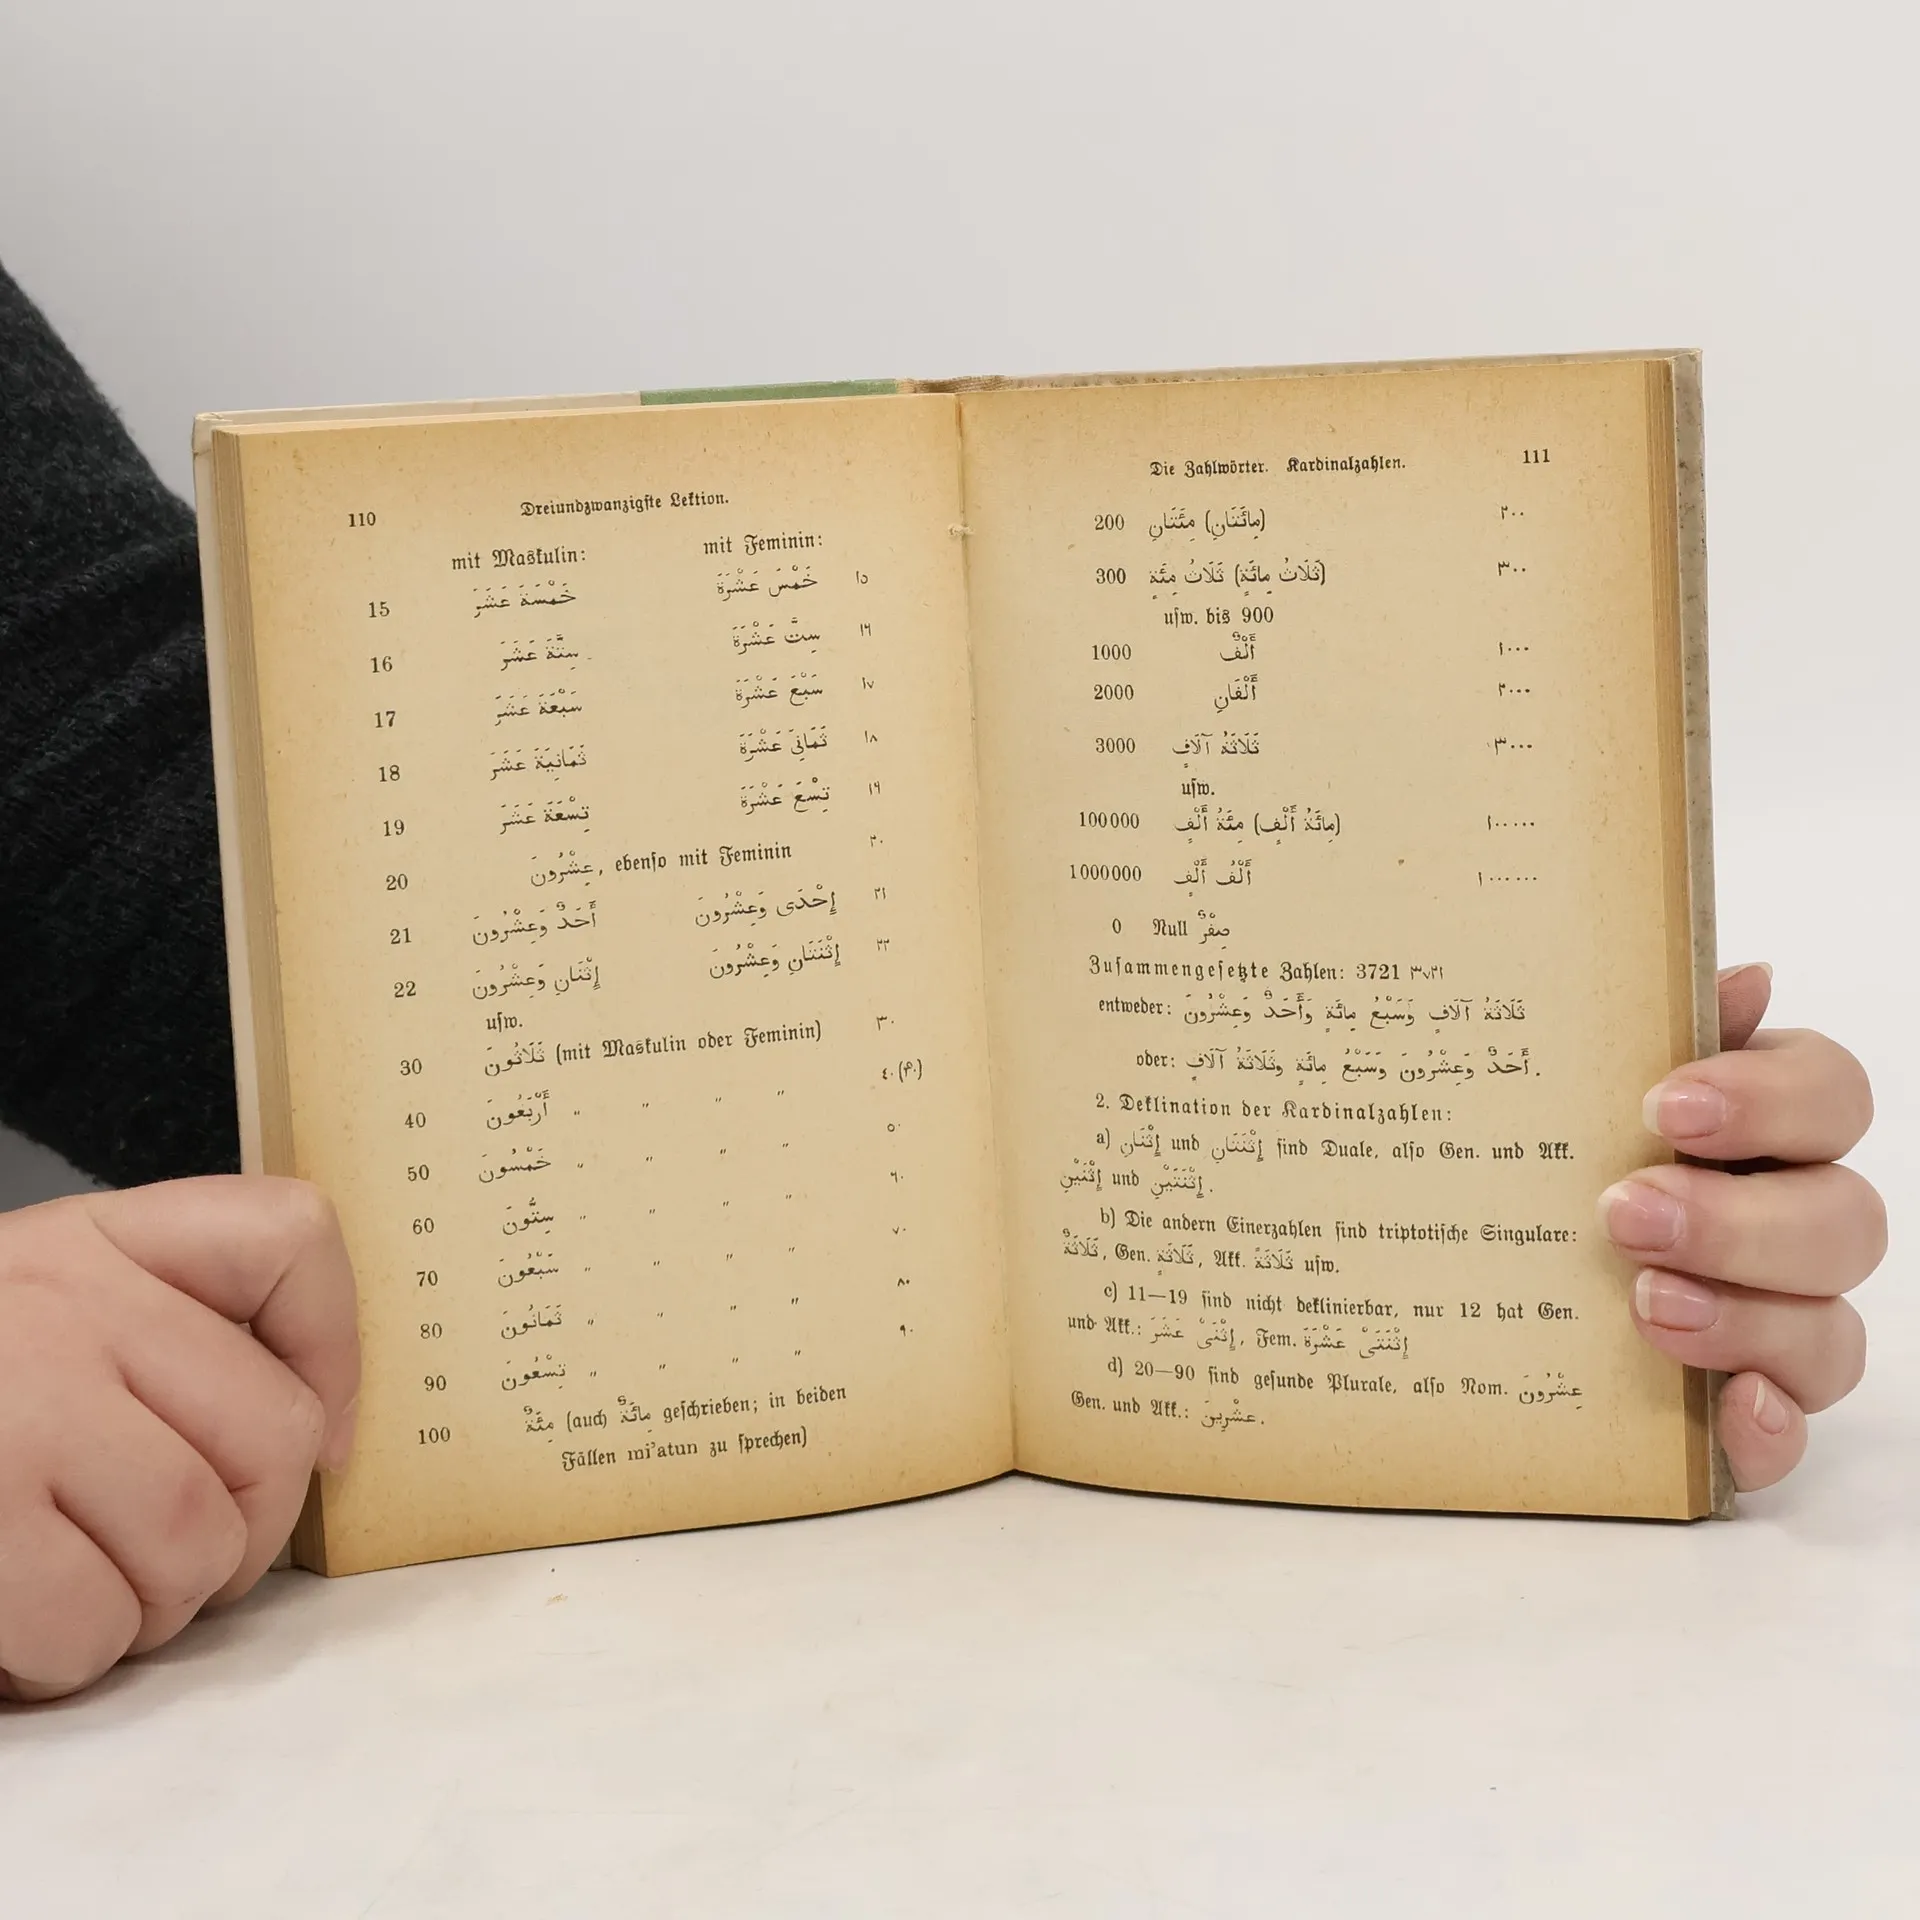 110 Dreiundzwanzigste Lektion.
mit Maskulin: mit Feminin:
15 خَمْسَةَ عَشَرَ خَمْسَ عَشْرَةَ ١٥
16 سِتَّةَ عَشَرَ سِتَّ عَشْرَةَ ١٦
17 سَبْعَةَ عَشَرَ سَبْعَ عَشْرَةَ ١٧
18 ثَمَانِيَةَ عَشَرَ ثَمَانِيَ عَشْرَةَ ١٨
19 تِسْعَةَ عَشَرَ تِسْعَ عَشْرَةَ ١٩
20 عِشْرُونَ, ebenso mit Feminin ٢٠
21 أَحَدٌ وَعِشْرُونَ إِحْدَى وَعِشْرُونَ ٢١
22 إِثْنَانِ وَعِشْرُونَ إِثْنَتَانِ وَعِشْرُونَ ٢٢
usw.
30 ثَلَاثُونَ (mit Maskulin oder Feminin) ٣٠
40 أَرْبَعُونَ " " " " ٤٠ (۴۰)
50 خَمْسُونَ " " " " ٥٠
60 سِتُّونَ " " " " ٦٠
70 سَبْعُونَ " " " " ٧٠
80 ثَمَانُونَ " " " " ٨٠
90 تِسْعُونَ " " " " ٩٠
100 مِئَةٌ (auch مِائَةٌ geschrieben; in beiden
Fällen mi'atun zu sprechen)
Die Zahlwörter. Kardinalzahlen. 111
200 مِئَتَانِ (مِائَتَانِ) ٢٠٠
300 ثَلَاثُ مِئَةٍ (ثَلَاثُ مِائَةٍ) ٣٠٠
usw. bis 900
1000 أَلْفٌ ١٠٠٠
2000 أَلْفَانِ ٢٠٠٠
3000 ثَلَاثَةُ آلَافٍ ٣٠٠٠
usw.
100000 مِئَةُ أَلْفٍ (مِائَةُ أَلْفٍ) ١٠٠٠٠٠
1000000 أَلْفُ أَلْفٍ ١٠٠٠٠٠٠
0 Null صِفْرٌ
Zusammengesetzte Zahlen: 3721 ٣٧٢١
entweder: ثَلَاثَةُ آلَافٍ وَسَبْعُ مِائَةٍ وَأَحَدٌ وَعِشْرُونَ
oder: أَحَدٌ وَعِشْرُونَ وَسَبْعُ مِائَةٍ وَثَلَاثَةُ آلَافٍ.
2. Deklination der Kardinalzahlen:
a) إِثْنَانِ und إِثْنَتَانِ sind Duale, also Gen. und Akk.
إِثْنَيْنِ und إِثْنَتَيْنِ.
b) Die andern Einerzahlen sind triptotische Singulare:
ثَلَاثَةٌ, Gen. ثَلَاثَةٍ, Akk. ثَلَاثَةً usw.
c) 11—19 sind nicht deklinierbar, nur 12 hat Gen.
und Akk.: إِثْنَىْ عَشَرَ, Fem. إِثْنَتَىْ عَشْرَةَ
d) 20—90 sind gesunde Plurale, also Nom. عِشْرُونَ
Gen. und Akk.: عِشْرِينَ.